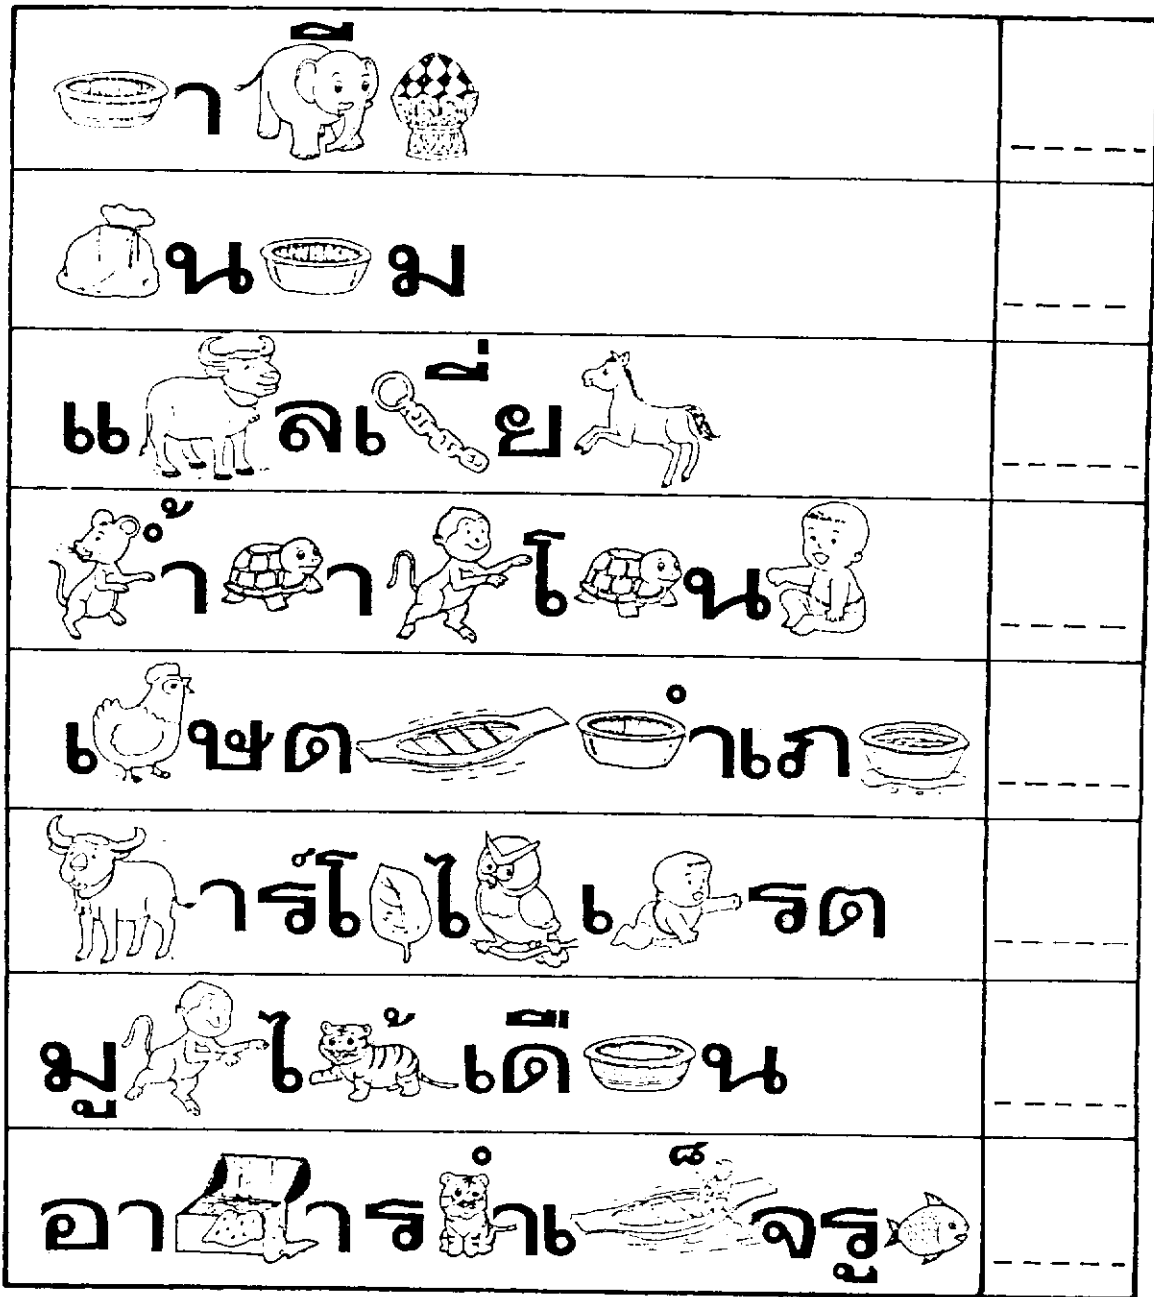 า ี
น ม
แ ลเ ี่ย
้ำ า โ น
เ ษต ำเภ
าร์โ ไ เ รต
มู ไ ้เดื น
อา าร ำเ ็จรู